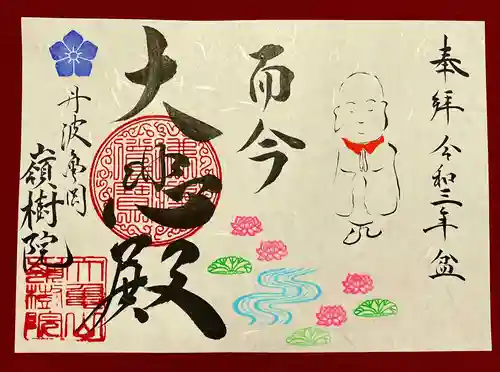 奉拝 令和三年 盆
而今
大悲殿
丹波亀岡
嶺樹院